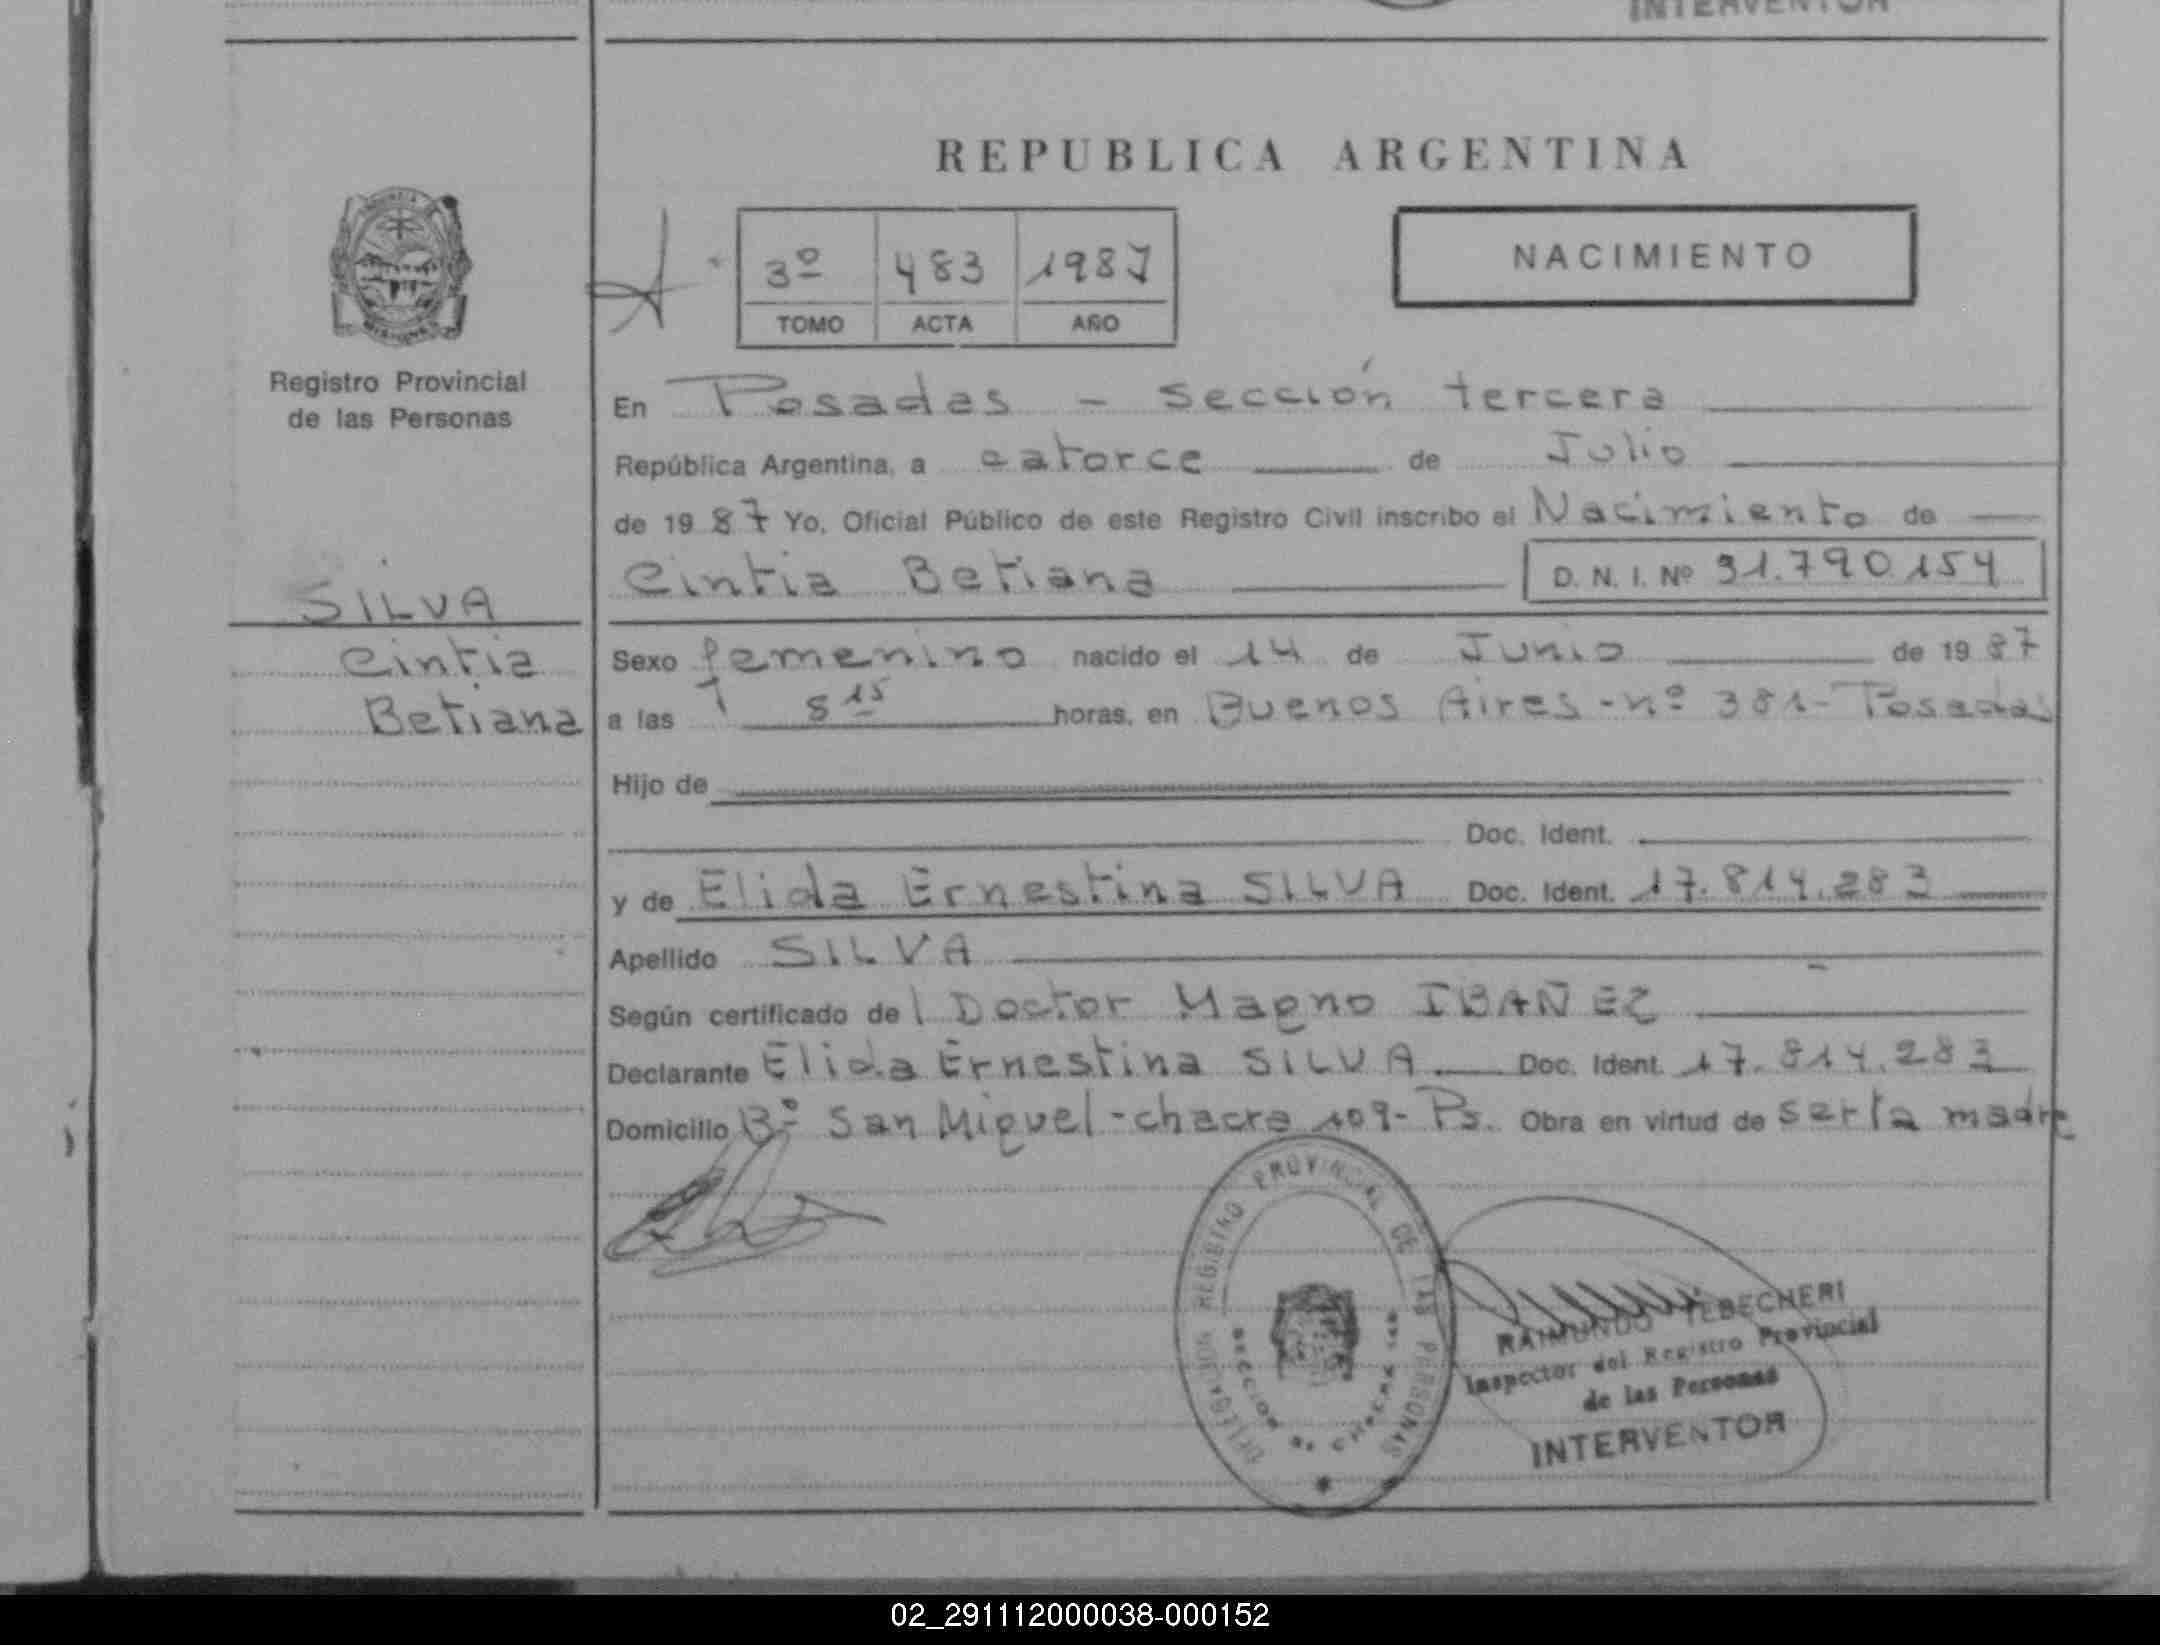 INTERVENTOR
REPUBLICA ARGENTINA
3º 483 1987
TOMO ACTA AÑO
NACIMIENTO
Registro Provincial
de las Personas
SILVA
Cintia
Betiana
En Posadas - sección tercera
República Argentina, a catorce de Julio
de 1987 Yo, Oficial Público de este Registro Civil inscribo el Nacimiento de
Cintia Betiana D. N. I. Nº 31.790.154
Sexo femenino nacido el 14 de Junio de 1987
a las 8 15 horas, en Buenos Aires - nº 381 - Posadas
Hijo de
Doc. Ident.
y de Elida Ernestina SILVA Doc. Ident. 17.814.283
Apellido SILVA
Según certificado del Doctor Magno IBAÑEZ
Declarante Elida Ernestina SILVA Doc. Ident. 17.814.283
Domicilio Bº San Miguel - chacra 109 - Ps. Obra en virtud de ser la madre
REGISTRO PROVINCIAL DE LAS PERSONAS
RAIMUNDO TEBECHERI
Inspector del Registro Provincial
de las Personas
INTERVENTOR
02_291112000038-000152